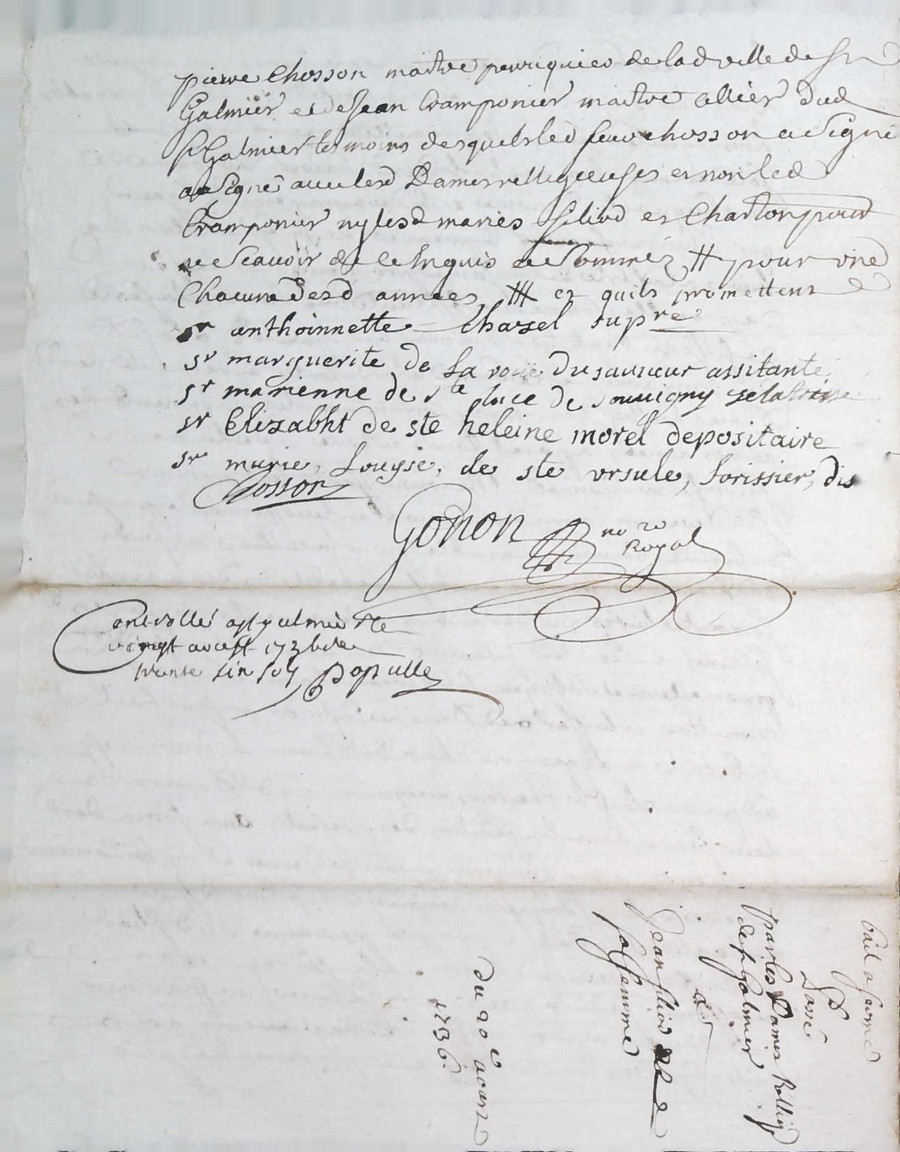 pierre Chosson maitre perruquier de lad ville de St
Galmier et de Jean Cramponier maitre allier dud
St Galmier temoins desquels led sieur chosson a signé
avec lesd Dames relligieuses et non led
Cramponier ny lesd mariés filiod et Charton pour
ne scavoir de ce enquis et somméz # pour une
chacune desd années # et quils promettent
sr anthoinnette Chazel supre
sr marguerite de La roüe du sauveur assitante
sr marienne de ste luce de souvigny zelatrisse
sr Elizabht de ste heleine morel depositaire
sr marie, Louyse, de ste ursule, forissier, dis
Chosson
Gonon no re Royal
Controllé a st galmier le
vingt avost 1736 reçu
trente six sols Populle
bail a ferme
Passé
Par les Dames Rellig
de st Galmier
a
Jean filiod et
sa femme
Du 20e aoust
1736.